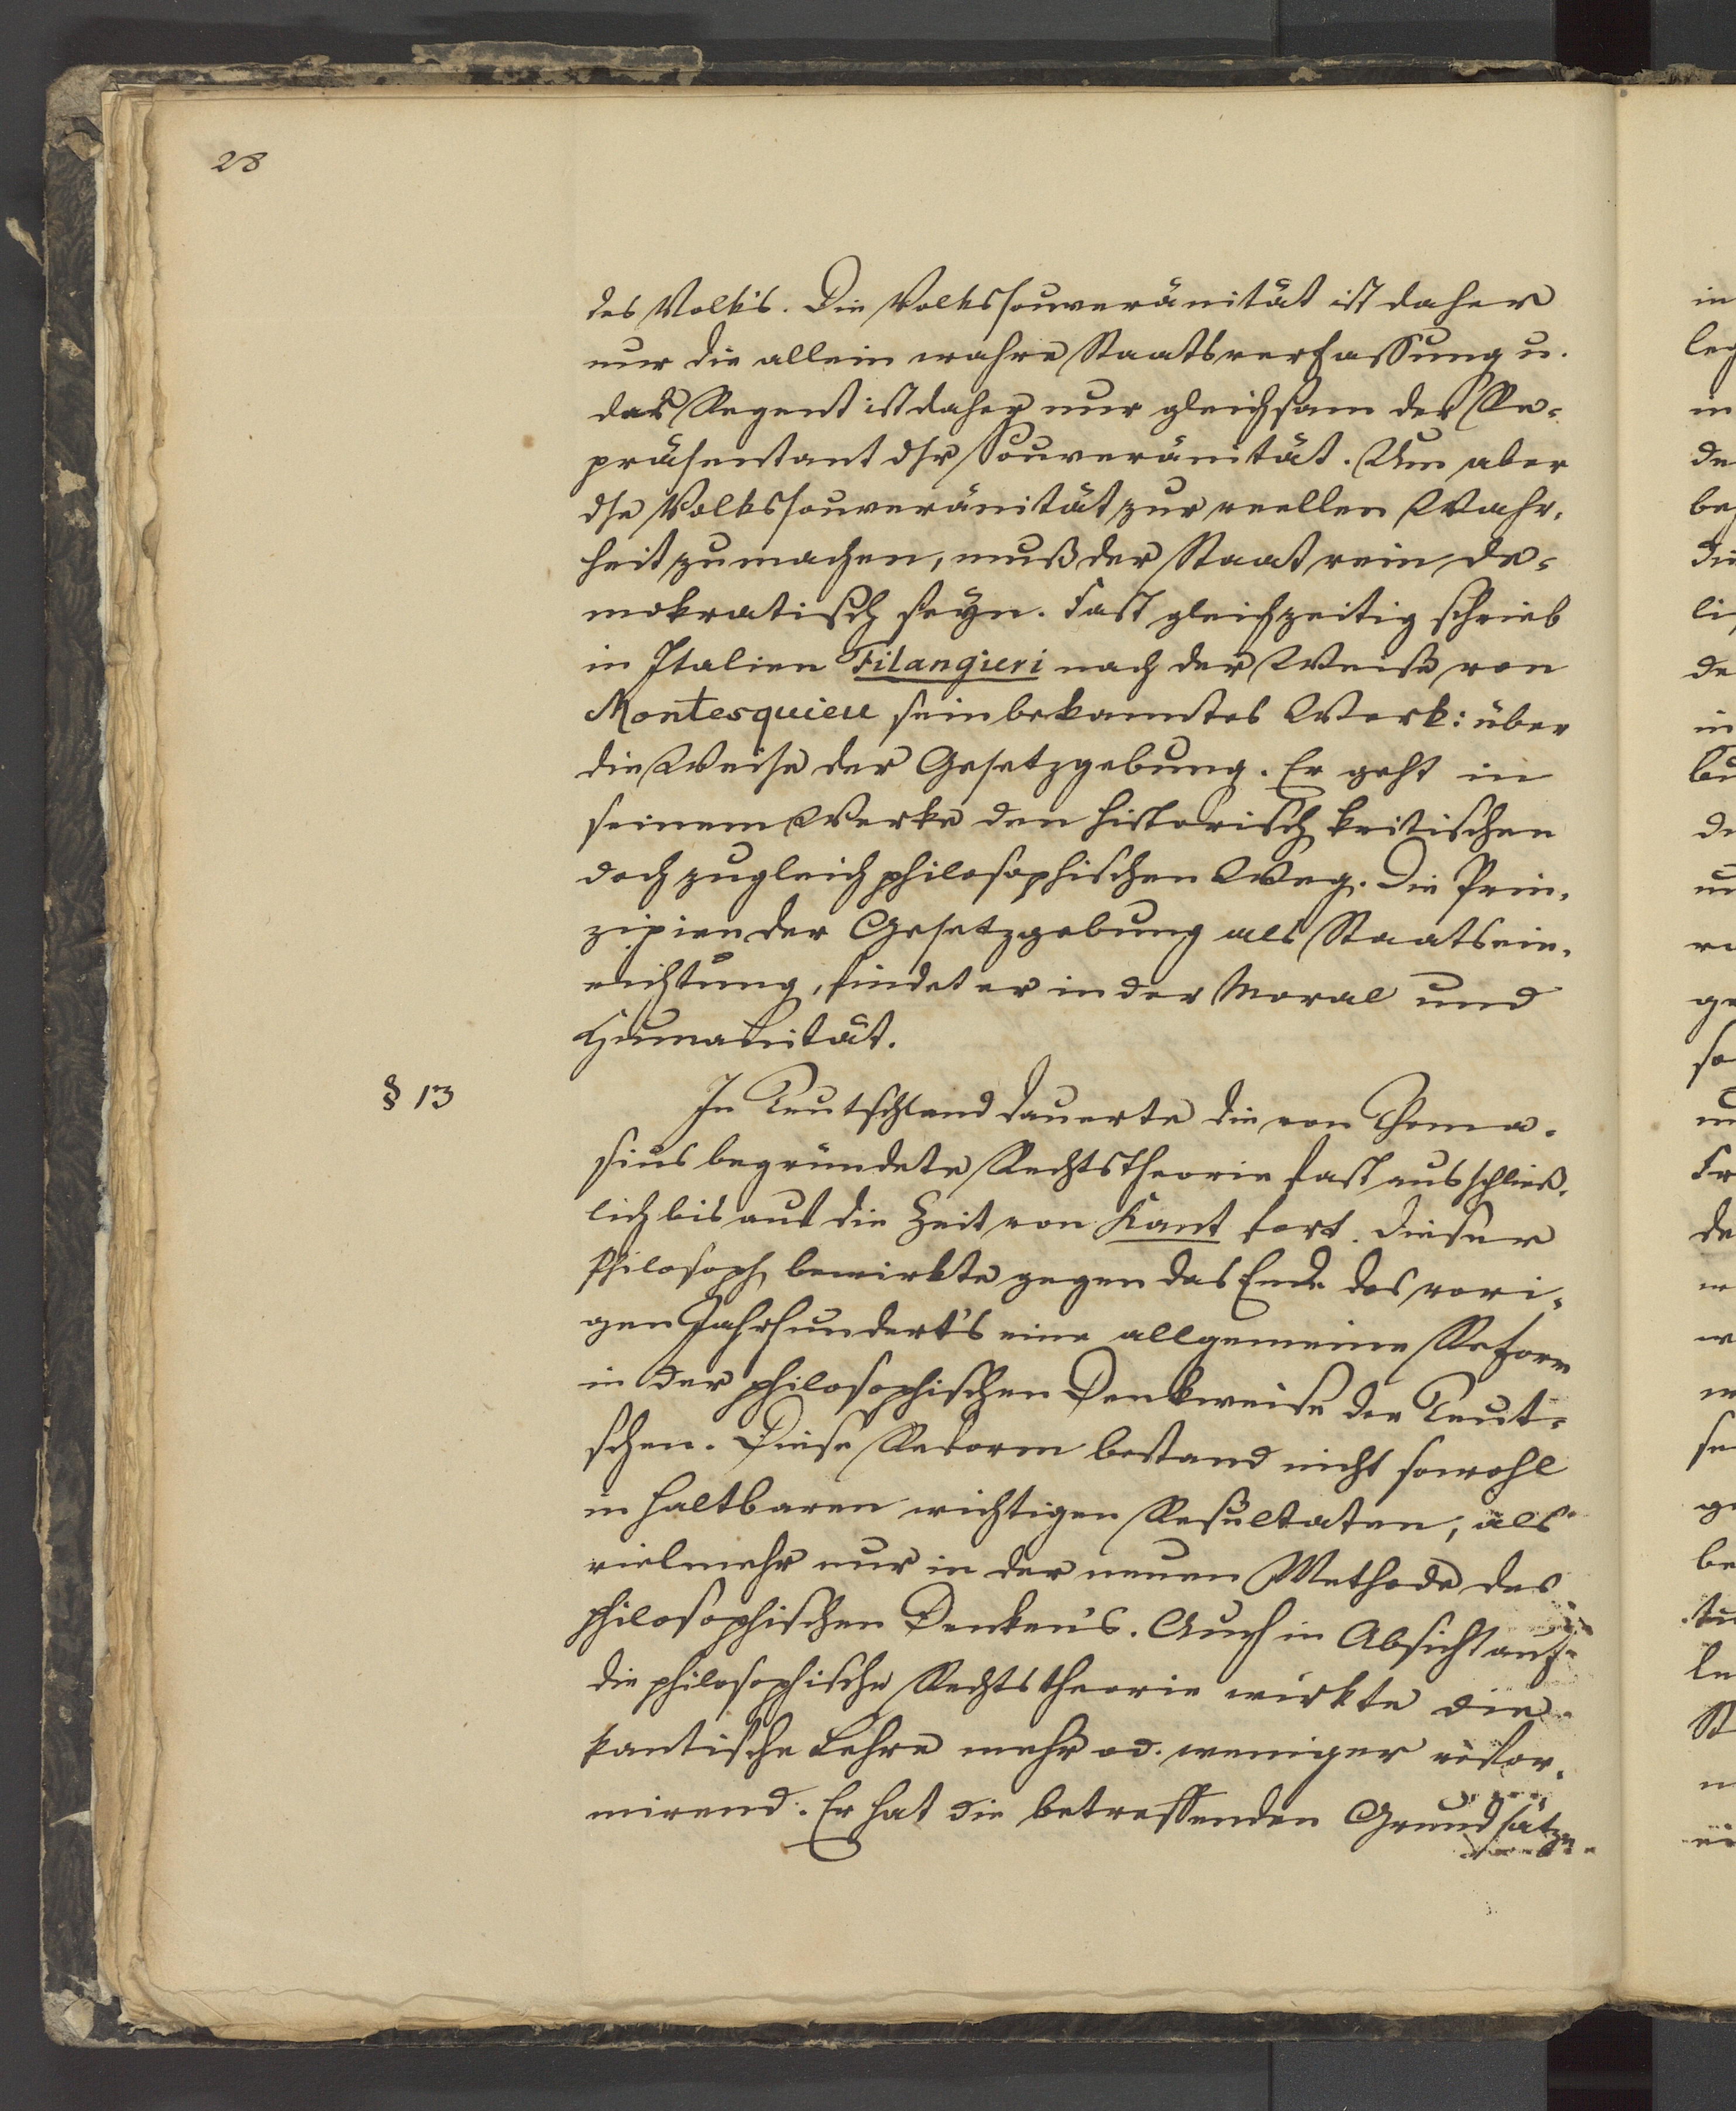 28
des Volk's. Die Volkssouveränität ist daher
nur die allein wahre Staatsverfassung u.
der Regent ist daher nur gleichsam der Re-
präsentant dsr Souveränität. Um aber
dse Volkssouveränität zur reellen Wahr-
heit zu machen, muß der Staat rein de-
mokratisch seyn. Fast gleichzeitig schrieb
in Italien Filangieri nach der Weise von
Montesquieu sein bekanntes Werk: über
die Weise der Gesetzgebung. Er geht in
seinem Werke den historisch kritischen
doch zugleich philosophischen Weg. Die Prin-
zipien der Gesetzgebung als Staatsein-
richtung, findet er in der Moral und
Humanität.
§ 13
In Teutschland dauerte die von Thoma-
sius begründete Rechtstheorie fast ausschließ-
lich bis auf die Zeit von Kant fort. Dieser
Philosoph bewirkte gegen das Ende des vori-
gen Jahrhundert's eine allgemeine Reform
in der philosophischen Denkweise der Teut-
schen. Diese Reform bestand nicht sowohl
in haltbaren wichtigen Resultaten, als
vielmehr nur in der neuen Methode des
philosophischen Denken's. Auch in Absicht auf
die philosophische Rechtstheorie wirkte die
kantische Lehre mehr od. weniger refor-
mirend. Er hat die betreffenden Grundsätze